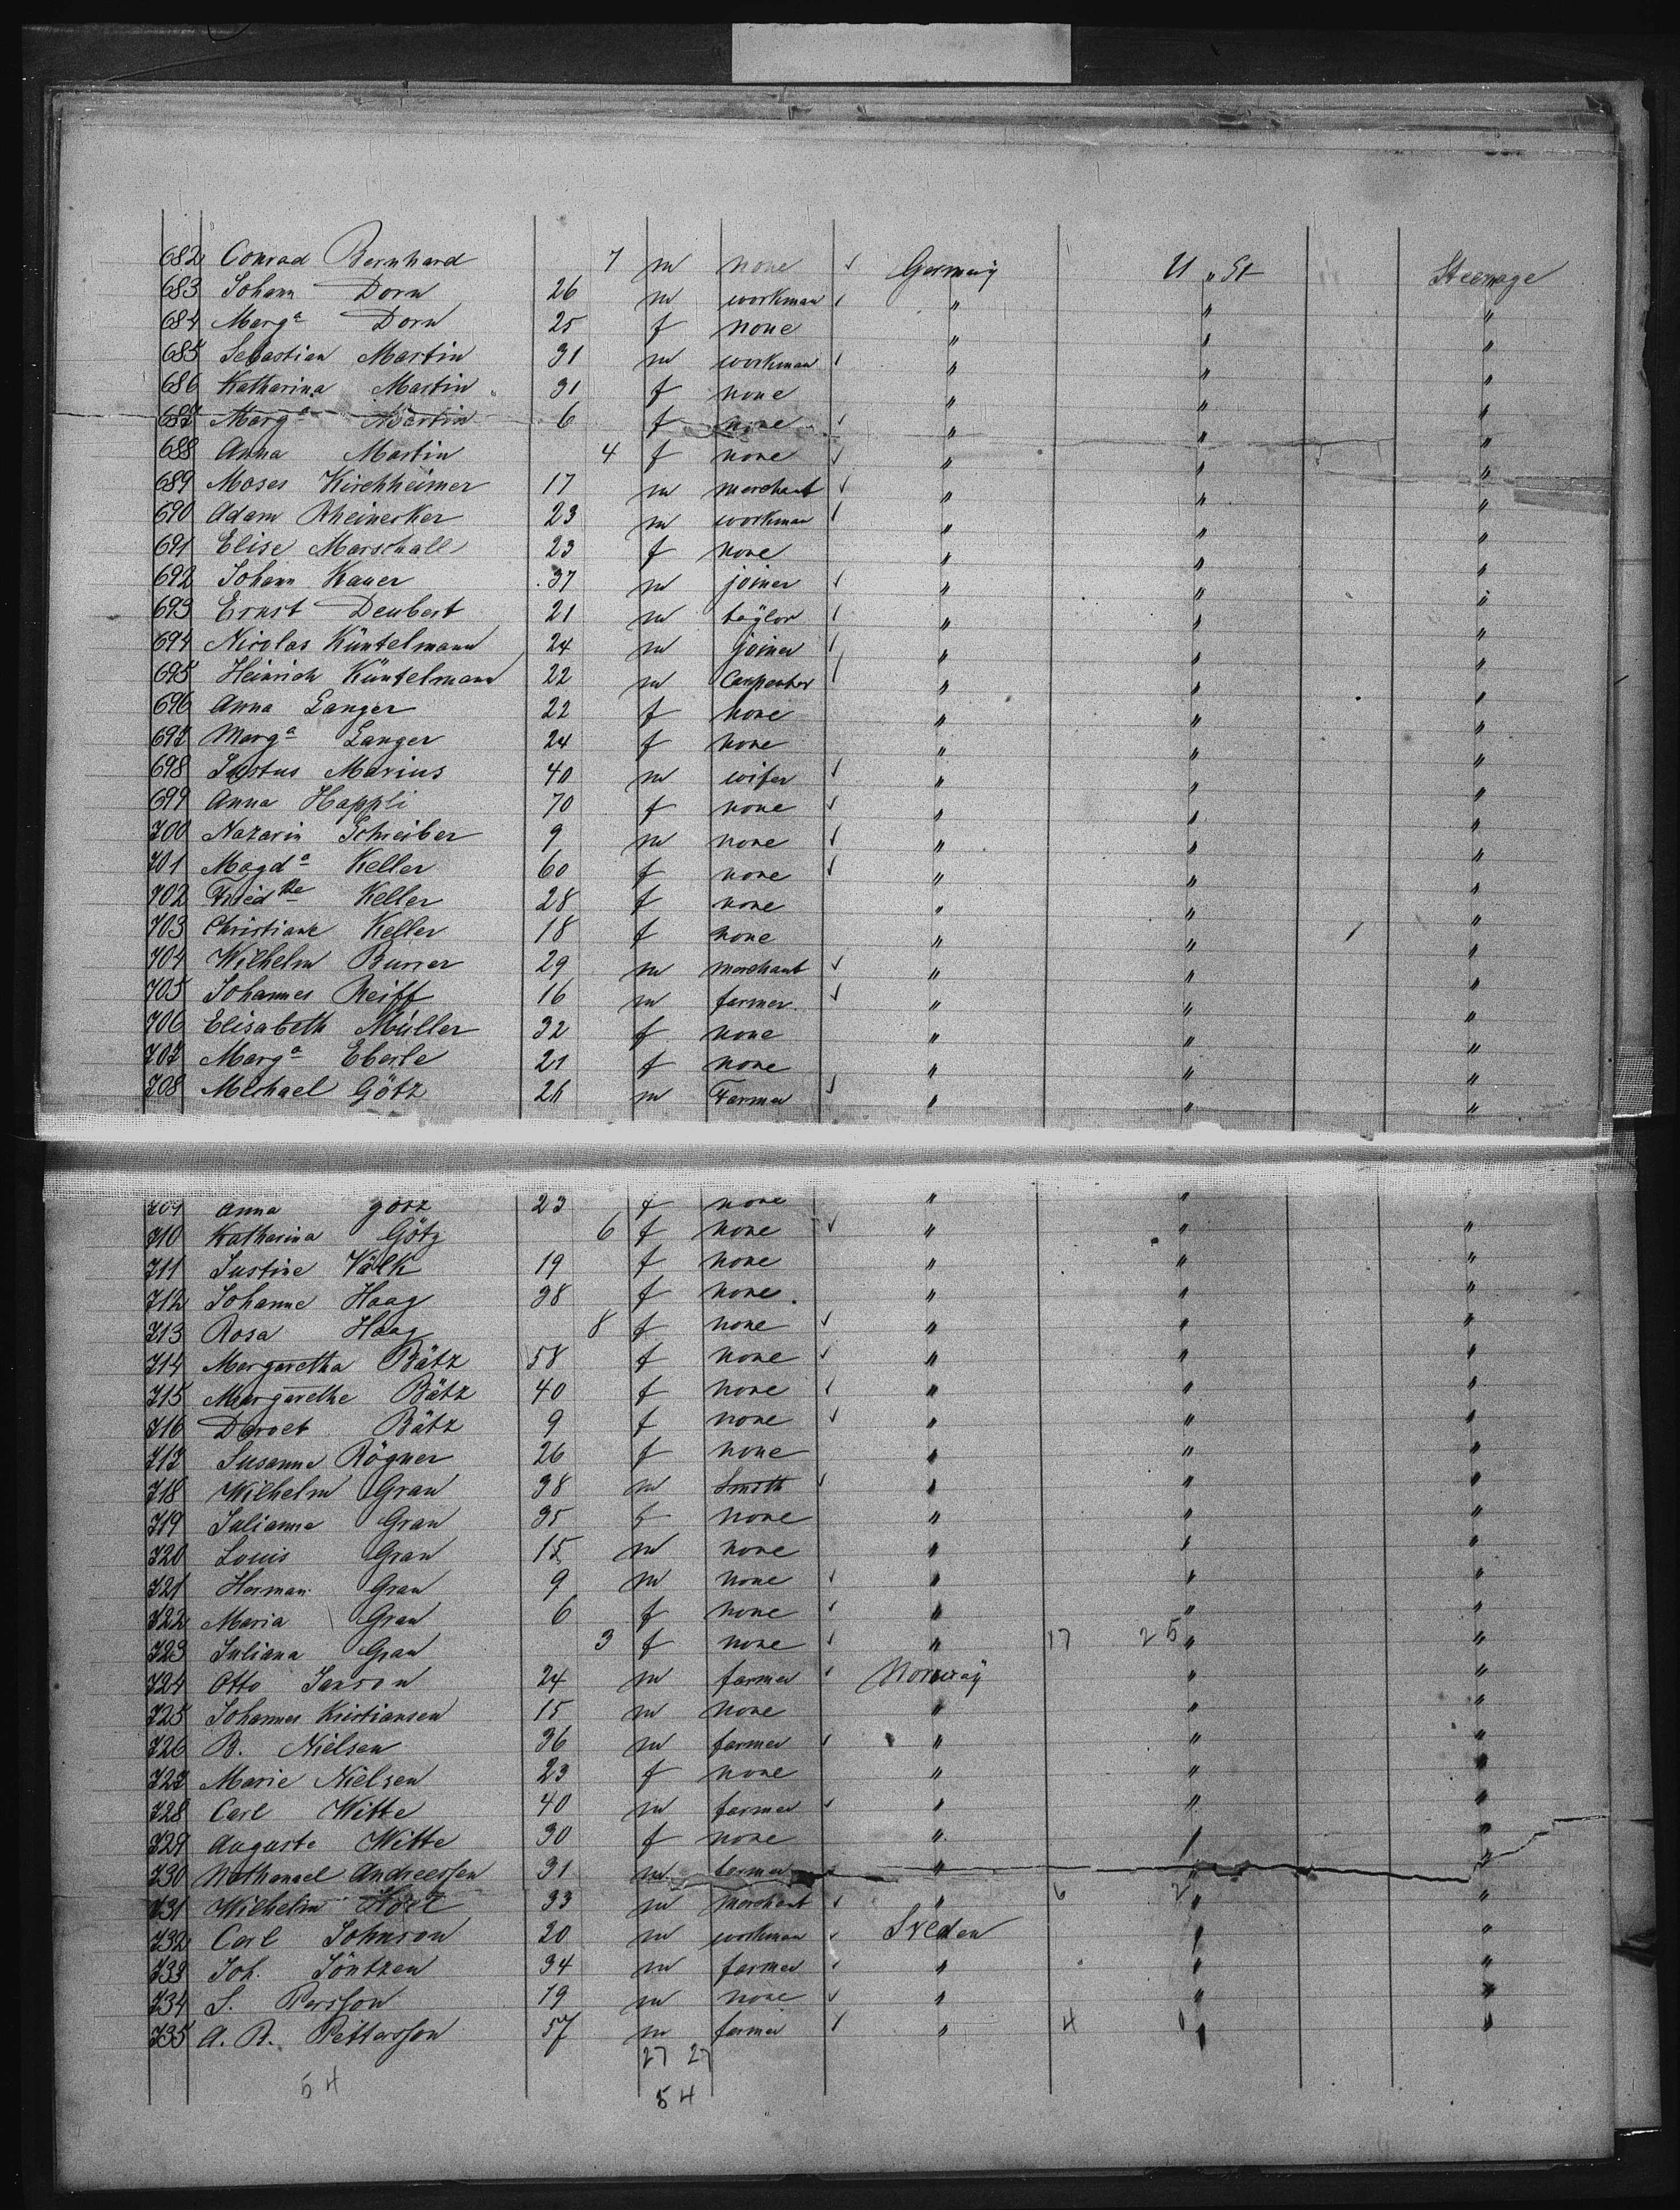 682 Conrad Bernhard 7 m none ✓ Germany U " St Steerage
683 Johann Dorn 26 m workman ✓ " " "
684 Marga Dorn 25 f none " " "
685 Sebastian Martin 31 m workman ✓ " " "
686 Katharina Martin 31 f none " " "
687 Marga Martin 6 f none ✓ " " "
688 Anna Martin 4 f none ✓ " " "
689 Moses Kirchheimer 17 m merchant ✓ " " "
690 Adam Rheinecker 23 m workman ✓ " " "
691 Elise Marschall 23 f none " " "
692 Johann Kauer 37 m joiner ✓ " " "
693 Ernst Deubert 21 m täylor ✓ " " "
694 Nicolas Küntelmann 24 m joiner ✓ " " "
695 Heinrich Küntelmann 22 m Carpenter ✓ " " "
696 Anna Langer 22 f none " " "
697 Marga Langer 24 f none " " "
698 Justus Marius 40 m wifer ✓ " " "
699 Anna Happli 70 f none ✓ " " "
700 Nazarin Schreiber 9 m none ✓ " " "
701 Magda Keller 60 f none ✓ " " "
702 Friedke Keller 28 f none " " "
703 Christiane Keller 18 f none " " "
704 Wilhelm Burrer 29 m merchant ✓ " " "
705 Johannes Reiff 16 m farmer ✓ " " "
706 Elisabeth Müller 32 f none " " "
707 Marga Eberle 21 f none " " "
708 Michael Götz 26 m Farmer ✓ " " "
709 Anna Götz 23 f none " "
710 Katharina Götz 6 f none ✓ " " "
711 Justine Völk 19 f none " " "
712 Johanne Haag 38 f none " " "
713 Rosa Haag 8 f none ✓ " " "
714 Margaretha Bätz 58 f none ✓ " " "
715 Margarethe Bätz 40 f none ✓ " " "
716 Doroet Bätz 9 f none ✓ " " "
717 Susanne Rögner 26 f none " " "
718 Wilhelm Grau 38 m Smith ✓ " " "
719 Julianne Grau 35 f none " " "
720 Louis Grau 15 m none " " "
721 Herman Grau 9 m none ✓ " " "
722 Maria Grau 6 f none ✓ " " "
723 Juliana Grau 3 f none ✓ " 17 25 " "
724 Otto Jarson 24 m farmer ✓ Norway " "
725 Johannes Kristiansen 15 m none " " "
726 B. Nielsen 36 m farmer ✓ " " "
727 Marie Nielsen 23 f none " " "
728 Carl Witte 40 m farmer ✓ " " "
729 Auguste Witte 30 f none " " "
730 Nathanael Andreessen 31 m farmer " " "
731 Wilhelm 33 m merchant ✓ " 6 2 " "
732 Carl Johnson 20 m workman ✓ Sveden " "
733 Joh. Jöntzen 34 m farmer ✓ " " "
734 S. Persson 19 m none ✓ " " "
735 A. B. Pettersson 57 m farmer ✓ " 4 0 " "
27 27
54 54